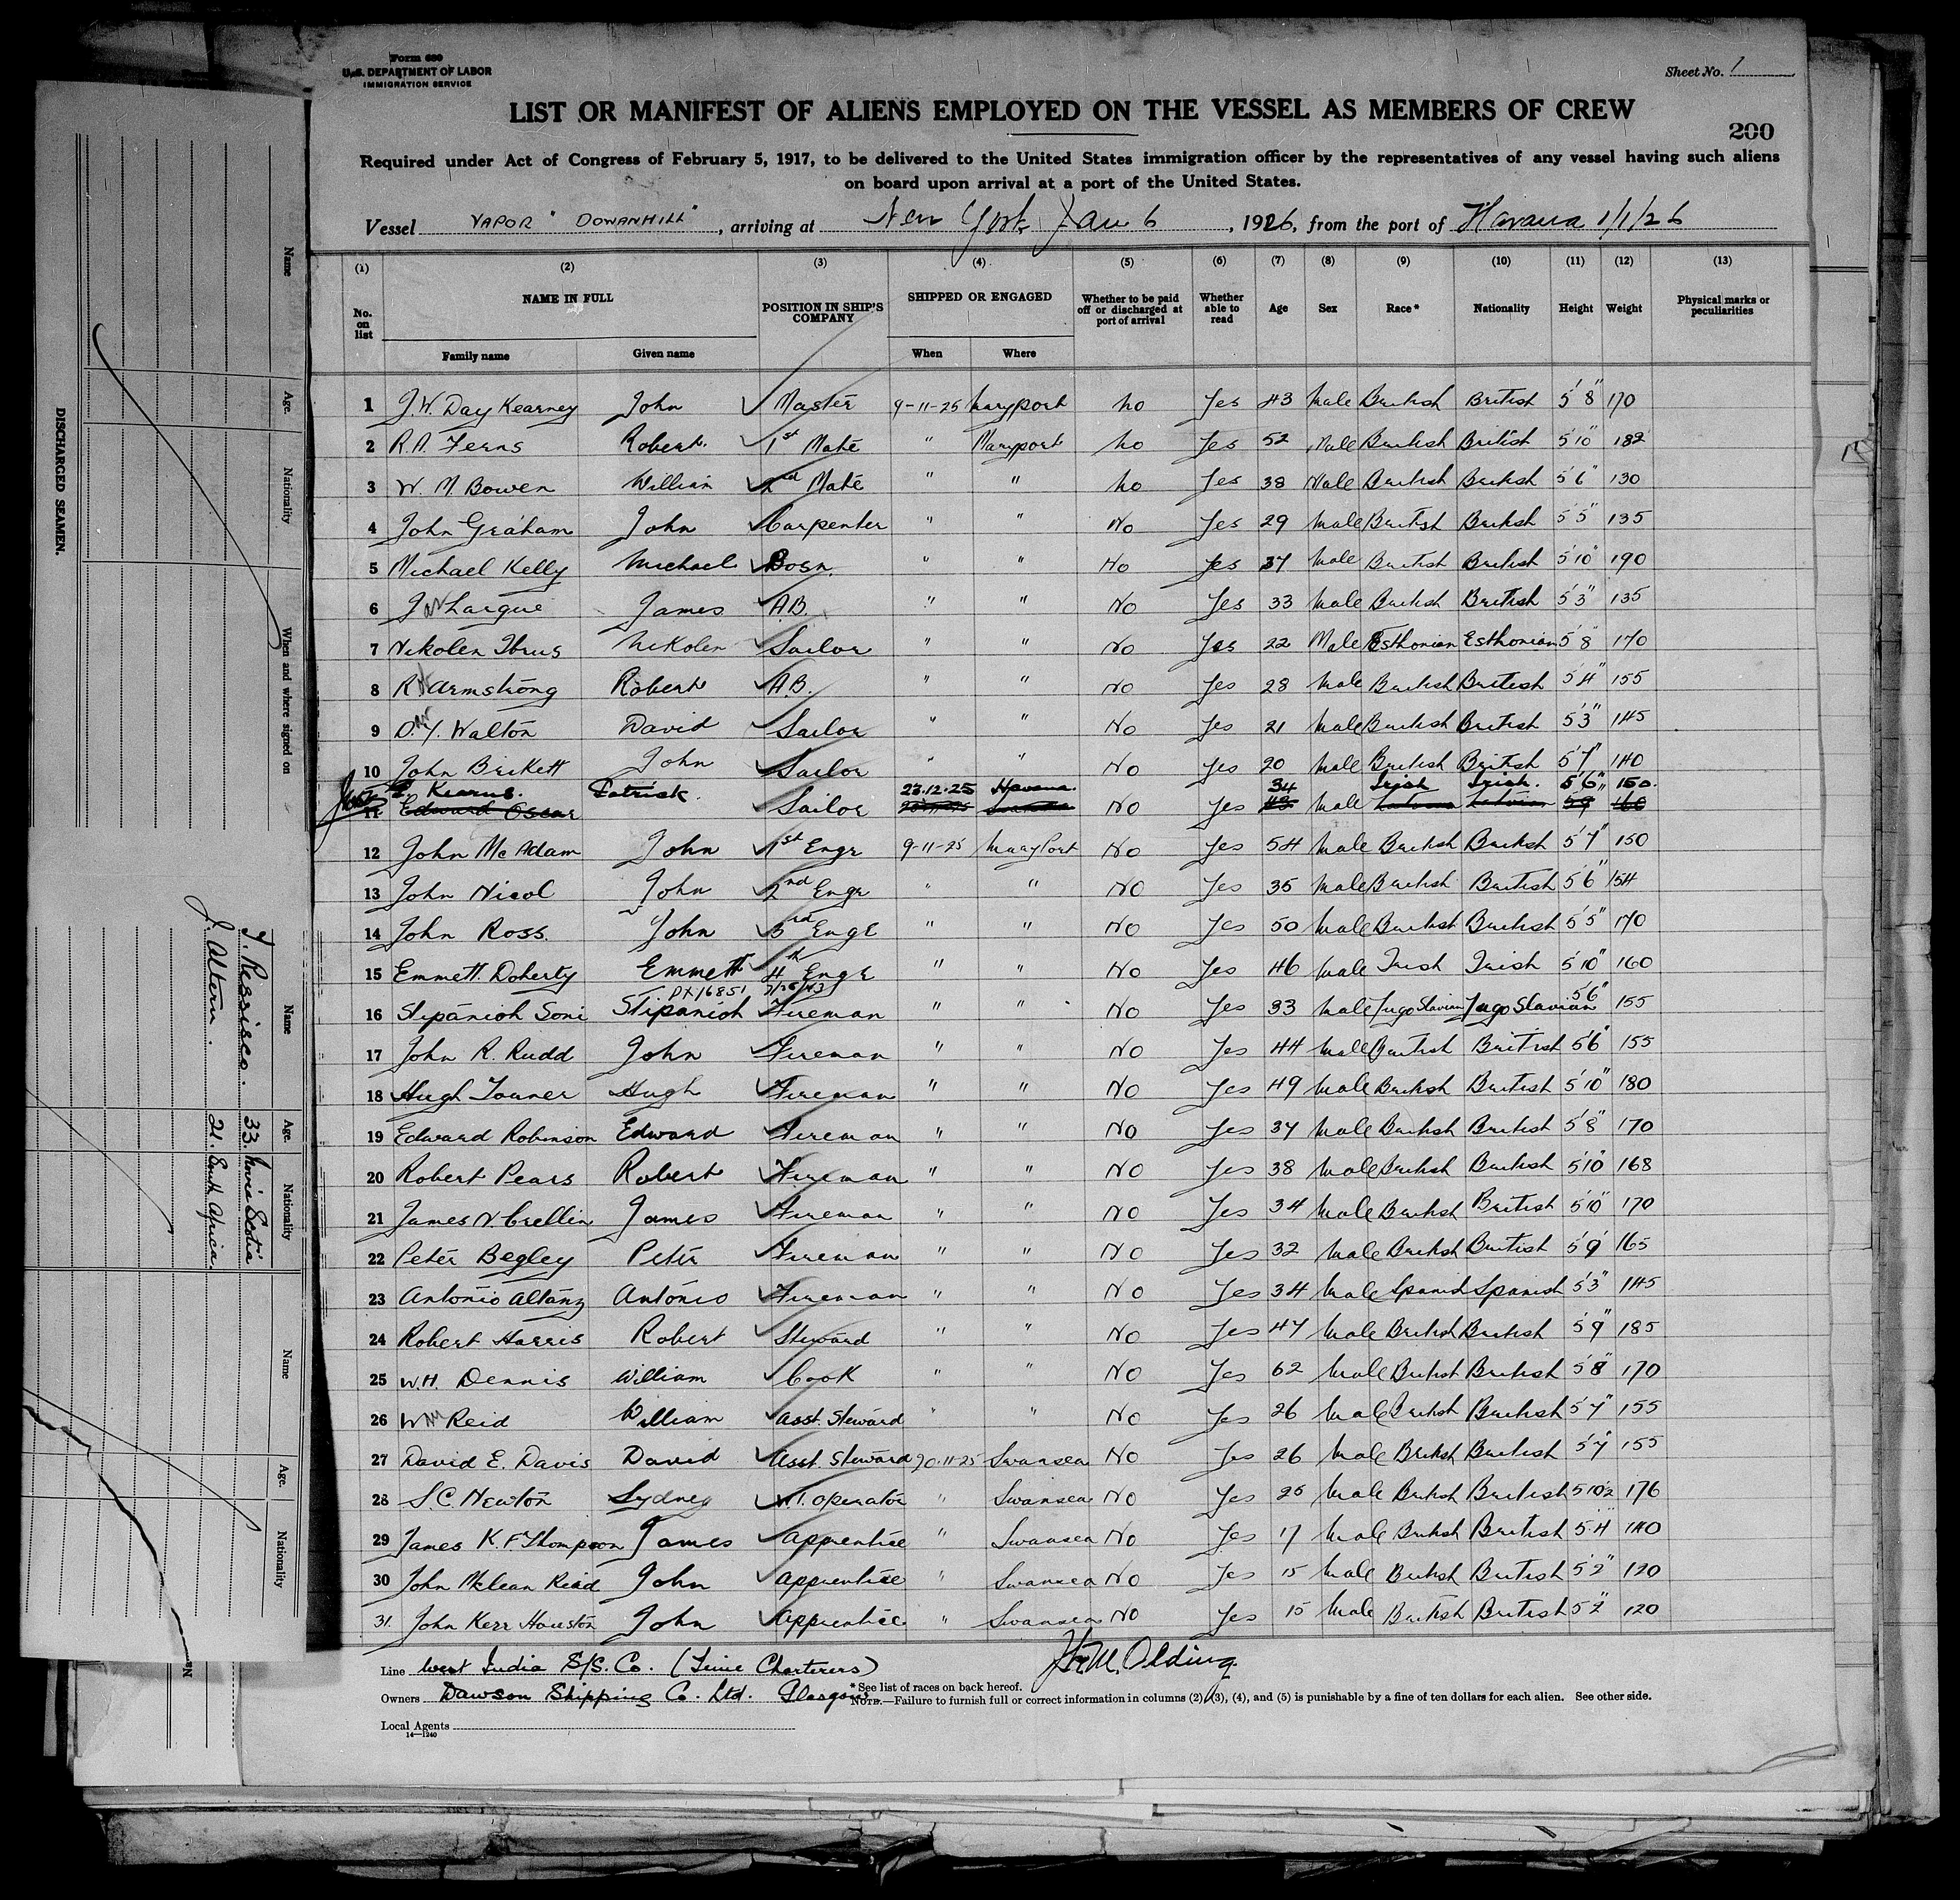 Form 680
U.S. DEPARTMENT OF LABOR
IMMIGRATION SERVICE
Sheet No. 1
LIST OR MANIFEST OF ALIENS EMPLOYED ON THE VESSEL AS MEMBERS OF CREW
200
Required under Act of Congress of February 5, 1917, to be delivered to the United States immigration officer by the representatives of any vessel having such aliens
on board upon arrival at a port of the United States.
Vessel VAPOR "DOWANHILL", arriving at New York Jan 6, 1926, from the port of Havana 1/1/26
(1) (2) (3) (4) (5) (6) (7) (8) (9) (10) (11) (12) (13)
No. on list NAME IN FULL POSITION IN SHIP'S COMPANY SHIPPED OR ENGAGED Whether to be paid off or discharged at port of arrival Whether able to read Age Sex Race* Nationality Height Weight Physical marks or peculiarities
Family name Given name When Where
1 J.W. Day Kearney John Master 9-11-25 Maryport No Yes 43 Male British British 5'8" 170
2 R.A. Ferns Robert. 1st Mate " Maryport No Yes 52 Male British British 5'10" 182
3 W. M. Bowen William 2nd Mate " " No Yes 38 Male British British 5'6" 130
4 John Graham John Carpenter " " No Yes 29 Male British British 5'5" 135
5 Michael Kelly Michael Bosn. " " No Yes 37 Male British British 5'10" 190
6 Jas Largue James A.B. " " No Yes 33 Male British British 5'3" 135
7 Nikolen Ibrus Nikolen Sailor " " No Yes 22 Male Esthonian Esthonian 5'8" 170
8 R Armstrong Robert A.B. " " No Yes 28 Male British British 5'4" 155
9 D.Y. Walton David Sailor " " No Yes 21 Male British British 5'3" 145
10 John Brikett John Sailor " " No Yes 20 Male British British 5'7" 140
P. Kearns. Patrick. 23.12.25 Havana. 34 Irish Irish. 5'6" 150.
11 Edward Oscar Sailor No Yes 43 Male Latvian Latvian 5'9 160
12 John McAdam John 1st Engr 9-11-25 MaryPort No Yes 54 Male British British 5'7" 150
13 John Nicol John 2nd Engr " " No Yes 35 Male British British 5'6" 154
14 John Ross. John 3rd Engr " " No Yes 50 Male British British 5'5" 170
15 Emmett. Doherty Emmett 4th Engr " " No Yes 46 Male Irish Irish 5'10" 160
16 Stipanioh Soni Stipanioh Fireman " " No Yes 33 Male Jugo Slavian Jugo Slavian 5'6" 155
17 John R. Rudd John Fireman " " No Yes 44 Male British British 5'6" 155
18 Hugh Touner Hugh Fireman " " No Yes 49 Male British British 5'10" 180
19 Edward Robinson Edward Fireman " " No Yes 37 Male British British 5'8" 170
20 Robert Pears Robert Fireman " " No Yes 38 Male British British 5'10" 168
21 James N. Crellin James Fireman " " No Yes 34 Male British British 5'10" 170
22 Peter Begley Peter Fireman " " No Yes 32 Male British British 5'9' 165
23 Antonio Altanz Antonio Fireman " " No Yes 34 Male Spanish Spanish 5'3" 145
24 Robert Harris Robert Steward " " No Yes 47 Male British British 5'9" 185
25 W.H. Dennis William Cook " " No Yes 62 Male British British 5'8" 170
26 Wm Reid William Asst. Steward " " No Yes 26 Male British British 5'7" 155
27 David E. Davis David Asst. Steward 20.11.25 Swansea No Yes 26 Male British British 5'7" 155
28 S.C. Newton Sydney W.T. Operator " Swansea No Yes 25 Male British British 5'10½ 176
29 James K. F Thompson James Apprentice " Swansea No Yes 17 Male British British 5'4" 140
30 John Mclean Reid John Apprentice " Swansea No Yes 15 Male British British 5'2" 120
31. John Kerr Houston John Apprentice " Swansea No Yes 15 Male British British 5'2" 120
Line West India S/S. Co. (Time Charterers)
Owners Dawson Shipping Co. Ltd. Glasgow
Local Agents
14-1240
Olding
* See list of races on back hereof.
NOTE.—Failure to furnish full or correct information in columns (2), (3), (4), and (5) is punishable by a fine of ten dollars for each alien. See other side.
DISCHARGED SEAMEN.
Name Age. Nationality When and where signed on
Name Age. Nationality
J. Altern. 21. South Africa.
33 Nova Scotia
Name Age. Nationality